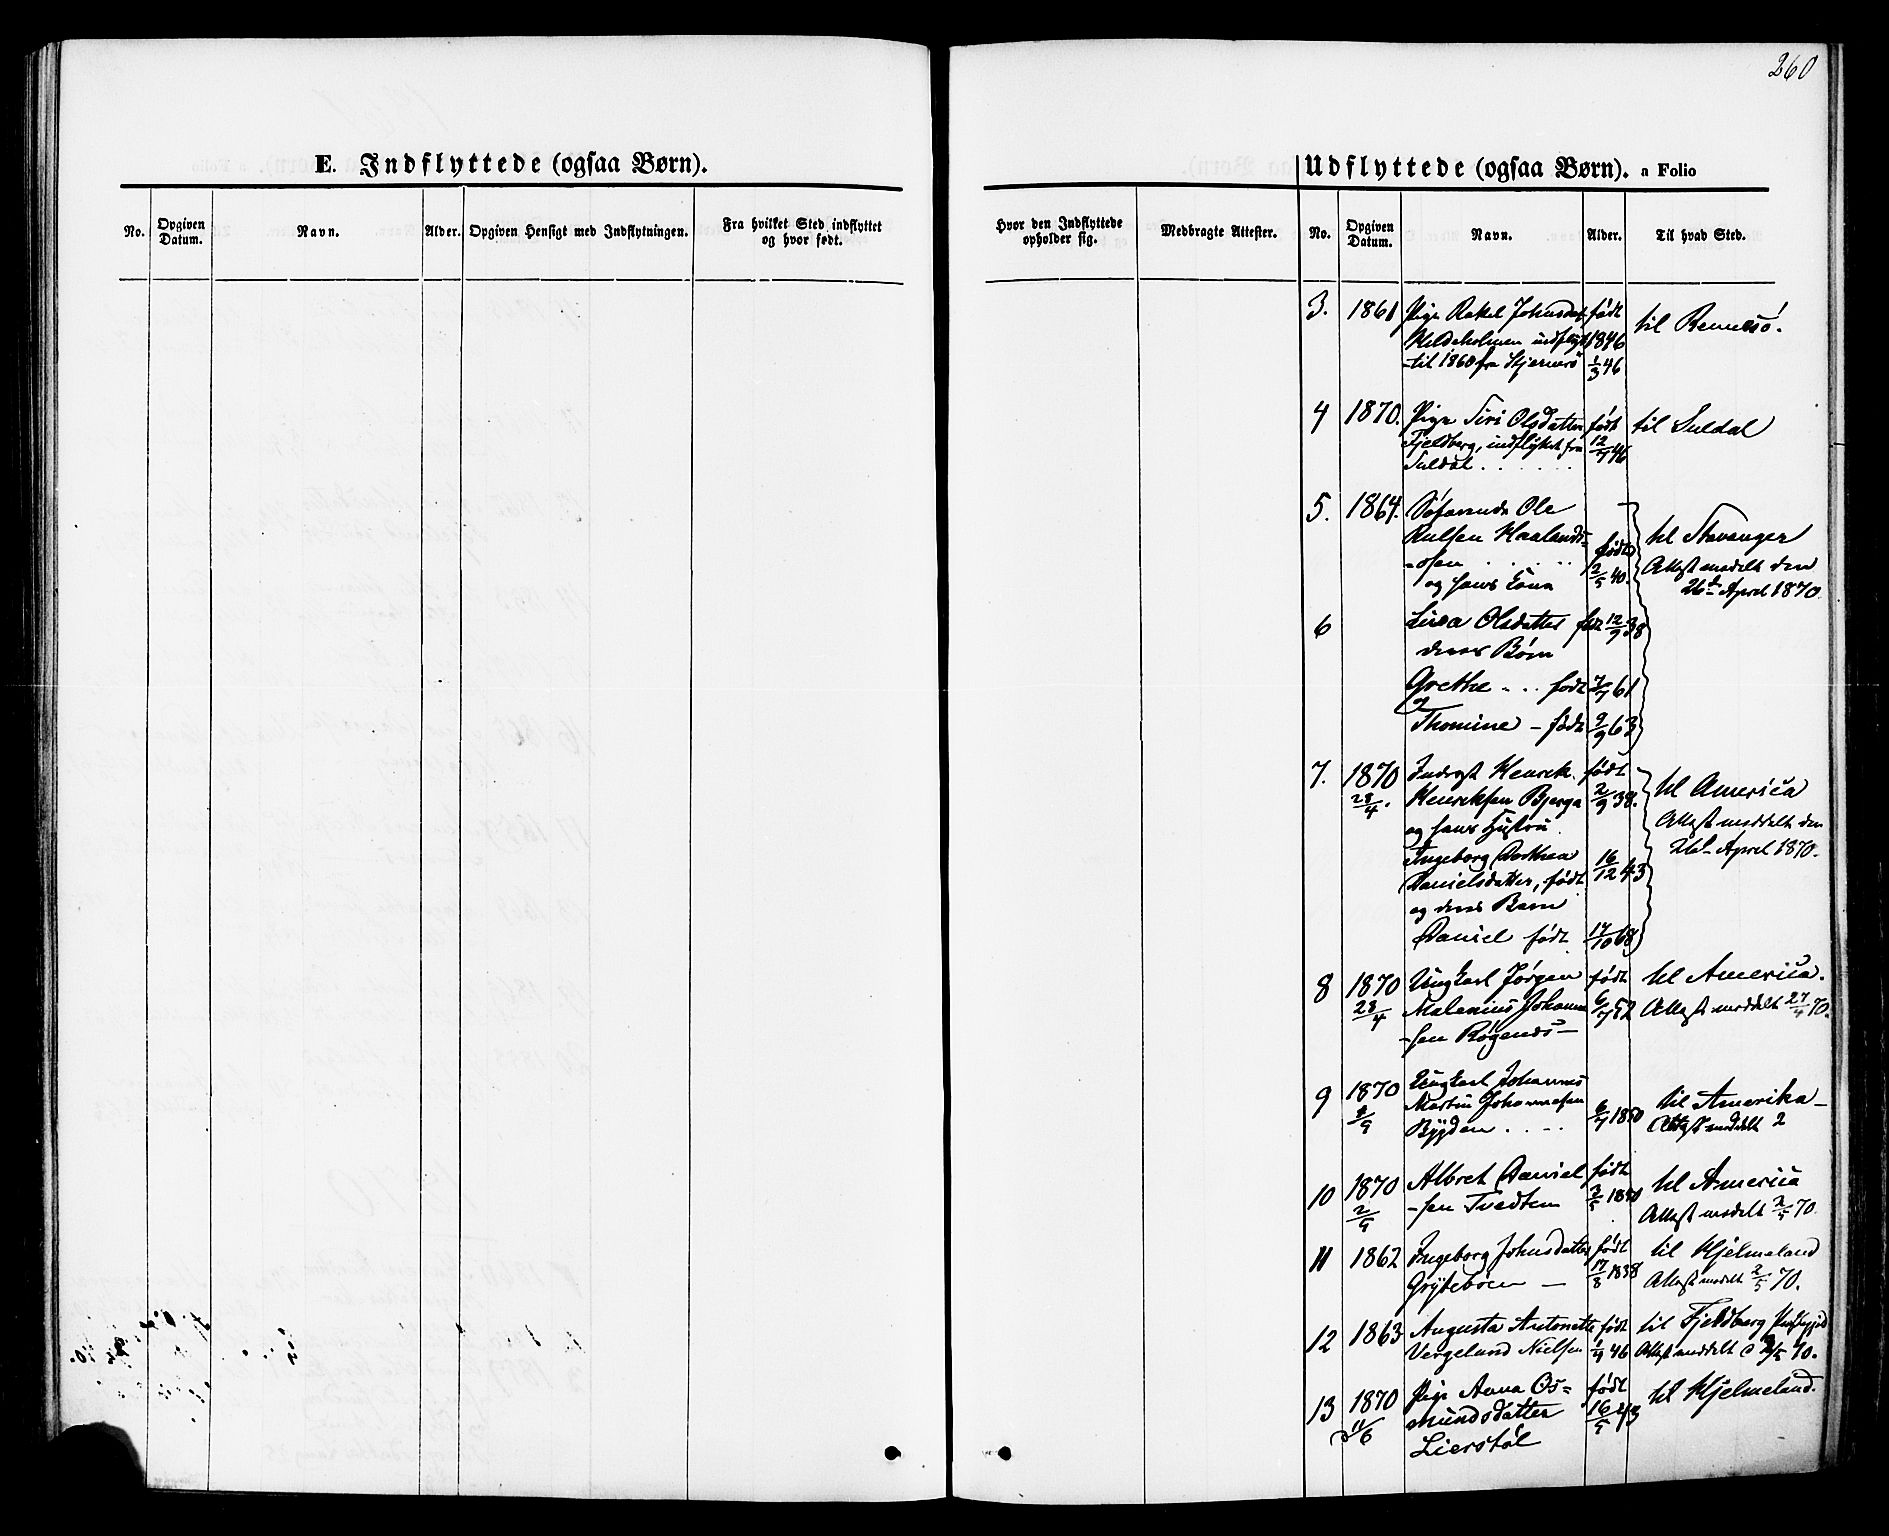 260
E. Indflyttede (ogsaa Børn).
No.
Opgiven Datum.
Navn.
Alder.
Opgiven Hensigt med Indflytningen.
Fra hvilket Sted indflyttet og hvor født.
Hvor den Indflyttede opholder sig.
Medbragte Attester.
Udflyttede (ogsaa Børn). a Folio
No.
Opgiven Datum.
Navn.
Alder.
Til hvad Sted.
3. 1861 Pige Rakel Johnsdat. født til Rennesø.
indflyt 1846
til 1860 fra Stjernerø 1/3 46
4 1870. Pige Siri Olsdatter født til Suldal
Fjeldberg, indflyttet fra 12/7 46
Suldal . . . . . .
5. 1864. Søfarende Ole
Rulsen Haalands= født til Stavanger
-osen . . . . . . 2/5 40. Attest meddelt den
og hans Kona 26de April 1870.
6 Lisa Olsdatter født 12/9 38
deres Børn
Grethe . . . født 7/7 61
og
Thomine – født 9/9 63
7. 1870 Inderst Henrik født til America
28/4. Henriksen Bjerga 2/9 38. Attest meddelt den
og hans Hustru 26de April 1870.
Ingeborg Dorthea 16/12 43
Danielsdatter, født
og deres Barn
Daniel født 14/10 68
8 1870 Ungkarl Jørgen født til America.
28/4 Malenius Johanne 6/7 52 Attest meddelt 27/4 70.
-sen
9 1870 Ungkarl Johannes til Amerika –
Martin Johannesen 6/7 1850 Attest meddelt 2
Bygden . . . .
10 1870 Albret Daniel født til America
-sen Tvedten Attest meddelt 2/5 70.
11 1862 Ingeborg Johnsdatter født til Hjelmeland
Grytebøen – 17/8 1838 Attest meddelt 2/5 70.
12 1863 Augusta Antonette født til Fjeldberg
Vergeland Nielsen 1/4 46 Attest meddelt 70.
13 1870 Pige Anna Os= født til Hjelmeland.
11/6 mundsdatter 16/5 43
Lierstøl